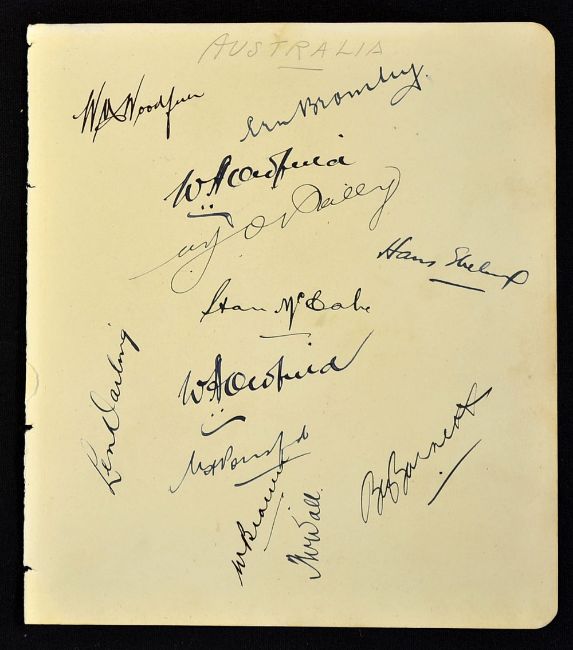 AUSTRALIA
W M Woodfull
Ern Bromley.
W A Oldfield
W J O'Reilly
Hans Ebeling
Stan McCabe
Len Darling
W A Oldfield
W H Ponsford
B A Barnett
W A Brown
T W Wall.